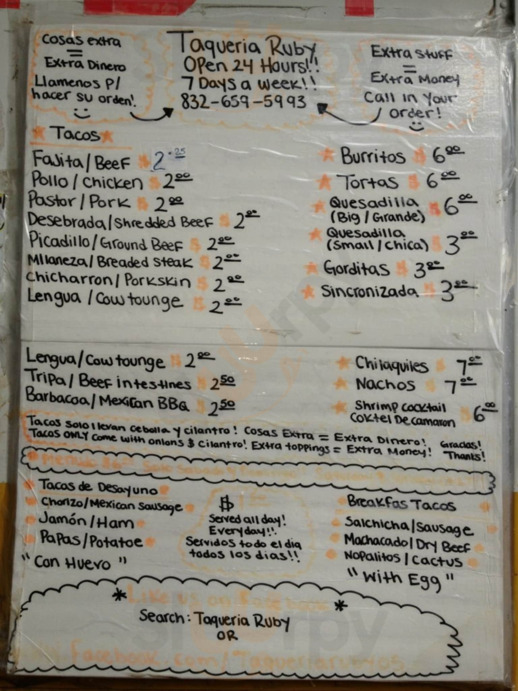 Cosas extra
=
Extra Dinero
Llamenos P/
hacer su orden!
Taqueria Ruby
Open 24 Hours!!
7 Days a week!!
832-659-5993
Extra Stuff
=
Extra Money
Call in Your
order!
Tacos
Fajita/Beef $2.25
Pollo/Chicken $2.00
Pastor/Pork $2.00
Desebrada/Shredded Beef $2.00
Picadillo/Ground Beef $2.00
Milaneza/Breaded Steak $2.00
Chicharron/Porkskin $2.00
Lengua/Cow tounge $2.00
Burritos $6.00
Tortas $6.00
Quesadilla
(Big/Grande) $6.00
Quesadilla
(Small/Chica) $3.00
Gorditas $3.00
Sincronizada $3.00
Lengua/Cow tounge $2.00
Tripa/Beef intestines $2.50
Barbacoa/Mexican BBQ $2.50
Chilaquiles $7.00
Nachos $7.00
Shrimp cocktail
Coktel De camaron $6.00
Tacos solo llevan cebolla y cilantro! Cosas Extra = Extra Dinero! Gracias!
Tacos ONLY come with onions & Cilantro! Extra toppings = Extra Money! Thanks!
Tacos de Desayuno
Chorizo/Mexican Sausage
Jamón/Ham
Papas/Potatoe
"Con Huevo"
$
Served all day!
Everyday!!
Servidos todo el dia
todos los dias!!
Breakfas Tacos
Salchicha/Sausage
Machacado/Dry Beef
Nopalitos/Cactus
"With Egg"
*Like us on Facebook*
Search: Taqueria Ruby
OR